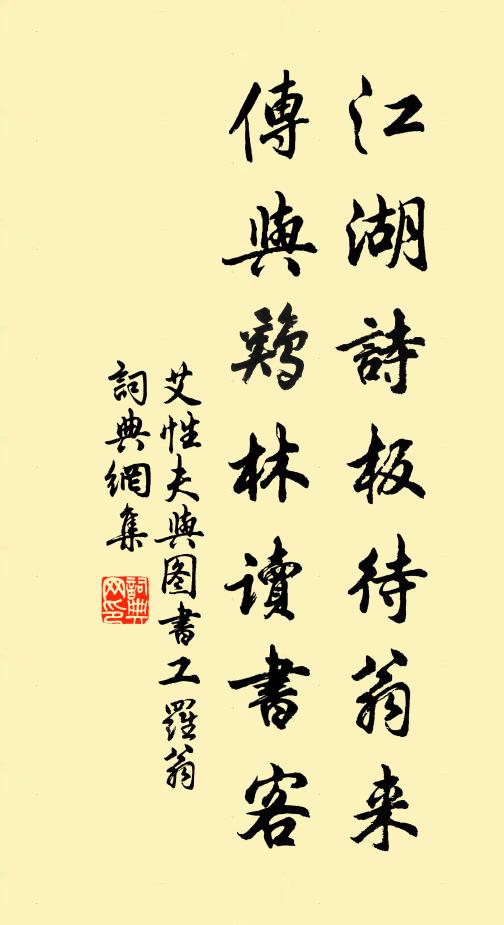 江湖詩板待翁来
傳與鷄林讀書客
艾性夫與图書工羅翁
詞典網集
詞典網印